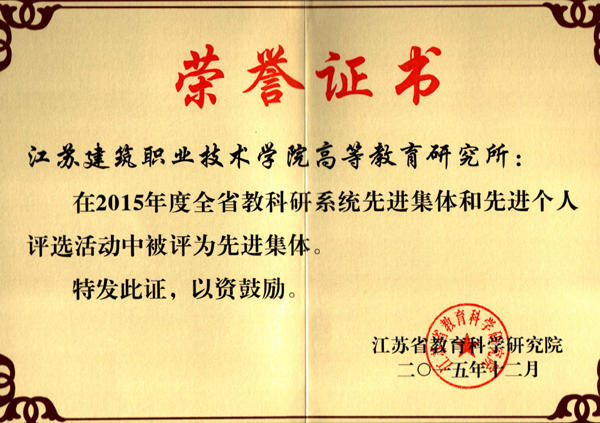 荣誉证书
江苏建筑职业技术学院高等教育研究所：
在2015年度全省教科研系统先进集体和先进个人
评选活动中被评为先进集体。
特发此证，以资鼓励。
江苏省教育科学研究院
江苏省教育科学研究院
二〇一五年十二月